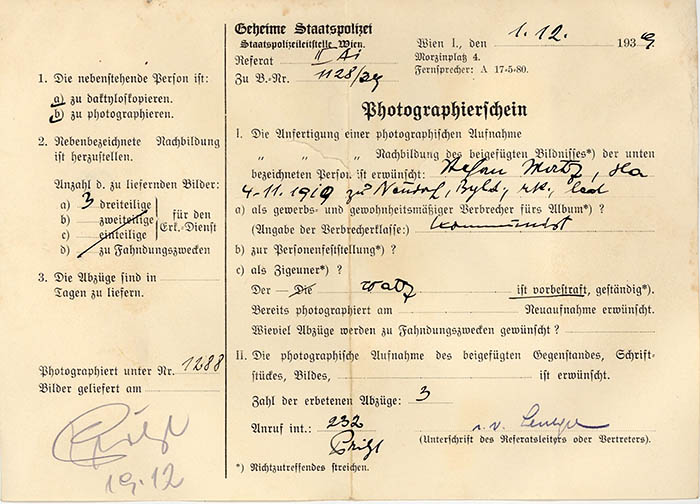 1. Die nebenstehende Person ist:
a) zu daktyloskopieren.
b) zu photographieren.
2. Nebenbezeichnete Nachbildung
ist herzustellen.
Anzahl d. zu liefernden Bilder:
a) 3 dreiteilige
b) zweiteilige
c) einteilige
d) zu Fahndungszwecken
für den
Erk.-Dienst
3. Die Abzüge sind in
Tagen zu liefern.
Photographiert unter Nr. 1288
Bilder geliefert am
19.12
Geheime Staatspolizei
Staatspolizeileitstelle Wien.
Referat II A1
Zu B.-Nr. 1128/39
Wien I., den 1.12. 1939.
Morzinplatz 4.
Fernsprecher: A 17-5-80.
Photographierschein
I. Die Anfertigung einer photographischen Aufnahme
" " " Nachbildung des beigefügten Bildnisses*) der unten
bezeichneten Person ist erwünscht: Stefan
4.11.1919 zu Neudorf, rk., led
a) als gewerbs- und gewohnheitsmäßiger Verbrecher fürs Album*) ?
(Angabe der Verbrecherklasse:) Kommunist
b) zur Personenfeststellung*) ?
c) als Zigeuner*) ?
Der — Die ist vorbestraft, geständig*).
Bereits photographiert am Neuaufnahme erwünscht.
Wieviel Abzüge werden zu Fahndungszwecken gewünscht ?
II. Die photographische Aufnahme des beigefügten Gegenstandes, Schrift-
stückes, Bildes, ist erwünscht.
Zahl der erbetenen Abzüge: 3
Anruf int.: 232
(Unterschrift des Referatsleiters oder Vertreters).
*) Nichtzutreffendes streichen.